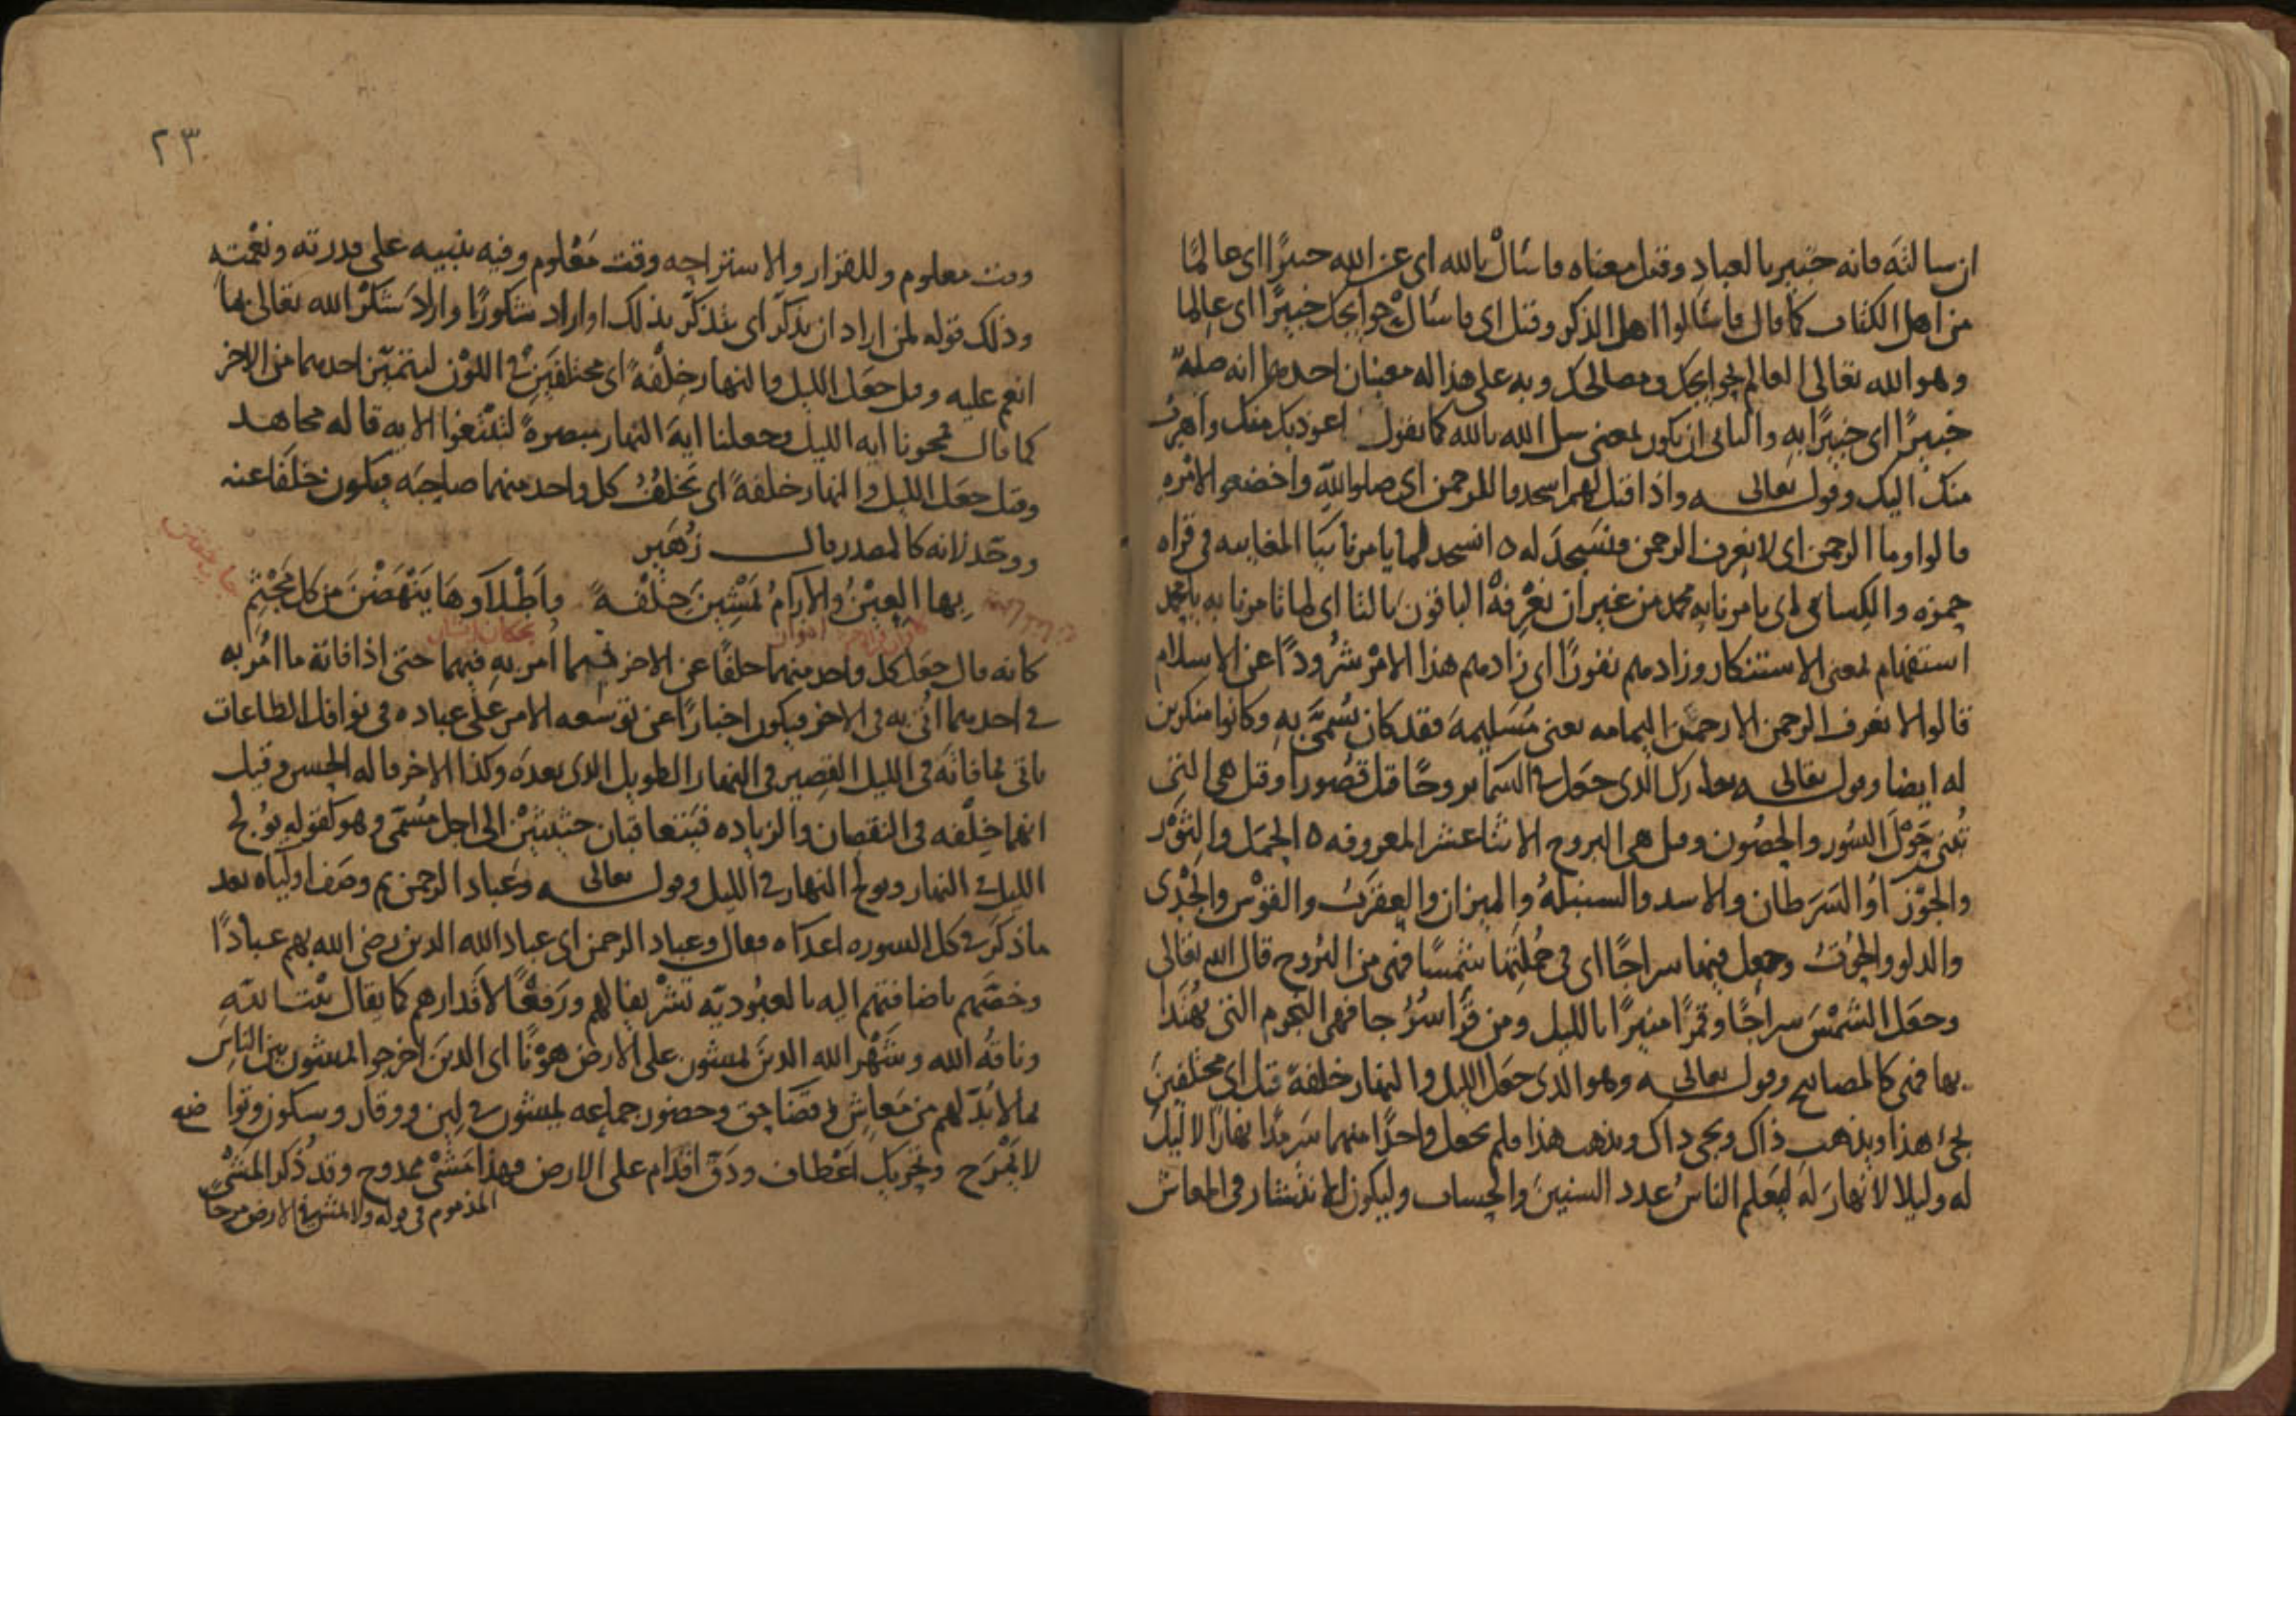 ان سالته فانه خبير بالعباد وقيل معناه فاسأل بالله اى عن الله خبيرًا اى عالمًا
من اهل الكتاب كما قال فاسألوا اهل الذكر وقيل اى فاسأل حوايجك خبيرًا اى عالما
وهو الله تعالى العالم بحوايجك ومصالحك وبه على هذا له معنيان احدهما انه صلة
خبيرًا اى خبيرًا به والثانى ان يكون بمعنى سل الله بالله كما يقول اعوذ بك منك واهرب
منك اليك وقوله تعالى واذا قيل لهم اسجدوا للرحمن اى صلوا لله واخضعوا لامره
قالوا وما الرحمن اى لا نعرف الرحمن فنسجد له ه انسجد لما يامرنا بيا المغايبه فى قراه
حمزه والكساى اى يامرنا به محمد من غير ان نعرفه الباقون بالتا اى لما تامرنا به يا محمد
استفهام بمعنى الاستنكار وزادهم نفورًا اى زادهم هذا الامر شرودًا عن الاسلام
قالوا لا نعرف الرحمن الا رحمن اليمامه يعنى مسيلمة فقد كان يسمى به وكانوا منكرين
له ايضا وقوله تعالى تبارك الذى جعل فى السما بروجًا قيل قصورا وقيل هى التى
تبنى حول السور والحصون وقيل هى البروج الاثنا عشر المعروفه ه الحمل والثور
والجوزآ والسرطان والاسد والسنبلة والميزان والعقرب والقوس والجدى
والدلو والحوت وجعل فيها سراجًا اى فى جملتها شمسًا فهى من البروج قال الله تعالى
وجعل الشمس سراجًا وقمرًا منيرًا بالليل ومن قرأ سُرُجا فهى النجوم التى يهتدا
بها فهى كالمصابيح وقوله تعالى وهو الذى جعل الليل والنهار خلفة قيل اى مختلفين
يجئ هذا ويذهب ذاك ويجى ذاك ويذهب هذا فلم يجعل واحدًا منهما سرمدًا نهارًا لا ليل
له وليلا لا نهار له ليعلم الناس عدد السنين والحساب وليكون للانتشار فى المعاش
٢٣
وقت معلوم وللقرار والاستراحه وقت معلوم وفيه تنبيه على قدرته ونعمته
وذلك قوله لمن اراد ان يذكر اى يتذكر بذلك او اراد شكورًا واراد شكر الله تعالى بما
انعم عليه وقيل جعل الليل والنهار خلفة اى مختلفين فى اللون ليتميز احدهما من الاخر
كما قال فمحونا اية الليل وجعلنا اية النهار مبصرة لتبتغوا الايه قاله مجاهد
وقيل جعل الليل والنهار خلفة اى يخلف كل واحد منهما صاحبه فيكون خلفا عنه
ووحّد لانه كالمصدر قال زُهَير
بها العِيْنُ والارآمُ يَمْشِينَ خِلْفَةً واَطْلاَوهَا يَنْهَضْنَ مِن كل مَجْثِمِ
كانه قال جعل كل واحد منهما خلفًا عن الاخر فيما امر به فيهما حتى اذا فاته ما امر به
فى احدهما اتى به فى الاخر فيكون اخبارًا عن توسعه الامر على عباده فى نوافل الطاعات
ياتى بما فاته فى الليل القصير فى النهار الطويل الذى بعده وكذا الاخر قاله الحسن وقيل
انهما خلفه فى النقصان والزياده فيتعاقبان حثيثين الى اجل مسمى وهو كقوله يولج
الليل فى النهار ويولج النهار فى الليل وقوله تعالى وعباد الرحمن ثم وصف اولياه بعد
ما ذكر فى كل السوره اعداه فقال وعباد الرحمن اى عباد الله الذين رضى الله بهم عبادًا
وخصّهم باضافتهم اليه بالعبوديّه تشريفا لهم ورفعًا لاقدارهم كما يقال بيت الله
وناقة الله وشهر الله الذين يمشون على الارض هونًا اى الذين اخرجوا يمشون بين الناس
لما لا بدّ لهم من معاش فى قضا حق وحضور جماعه يمشون فى لين ووقار وسكون وتواضع
لا بمرح وتحريك اعطاف ودق اقدام على الارض فهذا مشى ممدوح وقد ذكر المشى
المذموم فى قوله ولا تمش فى الارض مرحًا